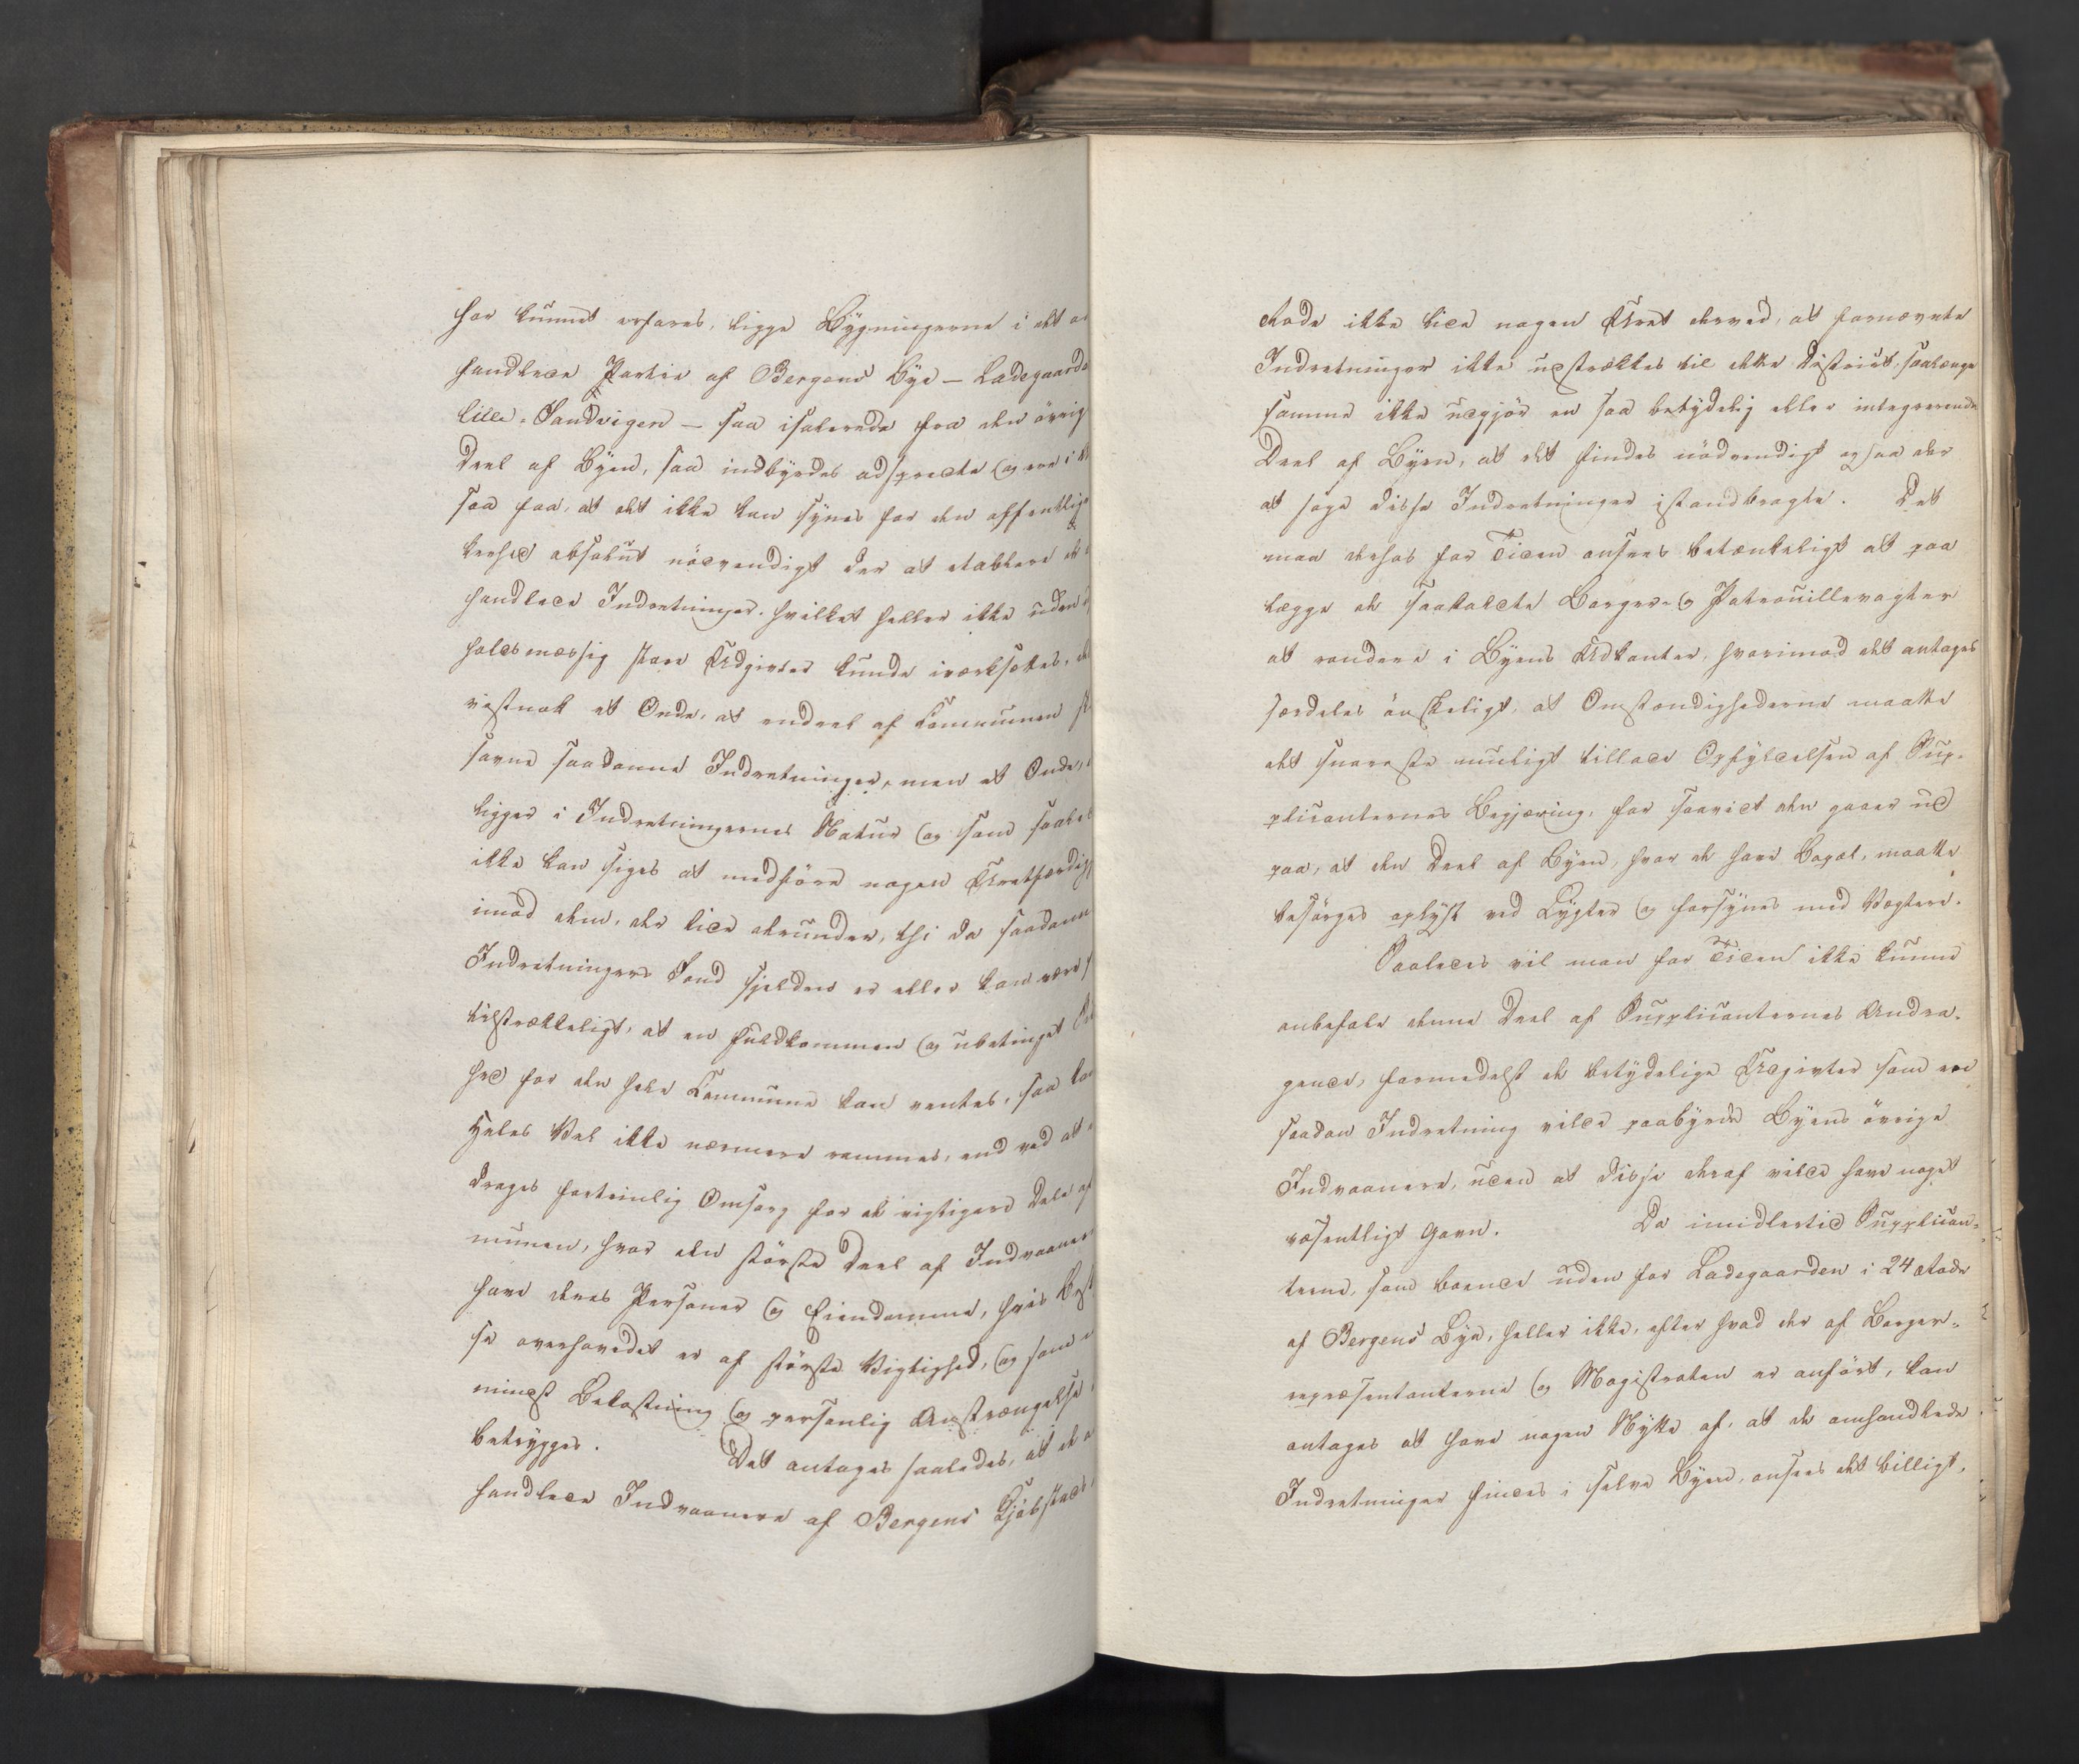 har kunnet erfares, ligge Bygningerne i det om
handlede Partie af Bergens Bye – Ladegaarde
lille-Sandvigen – saa isolerede fra den övrig
Deel af Byen, saa indbyrdes adspredte og ere i
saa faa, at det ikke kan synes for den offentlig
kerhed absolut nödvendigt der at etablere de
handlede Indretninger, hvilket heller ikke uden
holdsmæssig store Udgivter kunde iværksættes, de
vistnok et Onde, at endeel af Communen
savne saadanne Indretninger, men et Onde,
ligger i Indretningernes Natur og som saale
ikke kan siges at medføre nogen Uretfærdig
imod dem, der lide derunder, thi da saadann
Indretningers Fond sjelden er eller kan være
tilstrækkeligt, at en fuldkommen og ubetinget
hed for den hele Commune kan ventes, saa kan
Heles Vel ikke nærmere rammes, end ved at
drages fortrinlig Omsorg for de vigtigere Dele af
munen, hvor den störste Deel af Indvaaner
have deres Personer og Eiendomme, hvis
se overhovedet er af störste Vigtighed, og som
mindst Bekostning og personlig Anstrængelse
betrygges. Det antages saaledes, at de
handlede Indvaanere af Bergens Kjöbstads,
Rode ikke lide nogen Uret derved, at fornævnte
Indretninger ikke udstrækkes til dette District, saalænge
samme ikke udgjör en saa betydelig eller integrerende
Deel af Byen, at det findes nödvendigt ogsaa der
at søge disse Indretninger istandbragte. Det
maa derhos for Tiden ansees betænkeligt at paa
lægge de saakaldte Borger- og Patrouillevagter
at rondere i Byens Udkanter, hvorimod det antages
særdeles önskeligt, at Omstændighederne maatte
det snareste muligt tillade Opfyldelsen af Sup-
plicanternes Begjæring, for saavidt den gaaer ud
paa, at den Deel af Byen, hvor de have Bopæl, maatte
besörges oplyst ved Lygter og forsynes med Vægtere.
Saaledes vil man for Tiden ikke kunne
anbefale denne Deel af Supplicanternes Andra-
gende, formedelst de betydelige Udgivter som en
saadan Indretning vilde paabyrde Byens övrige
Indvaanere, uden at disse deraf vilde have noget
væsentligt Gavn. Da imidlertid Supplican-
terne, som boende uden for Ladegaarden i 24 Rode
af Bergens Bye, heller ikke, efter hvad der af Borger-
repræsentanterne og Magistraten er anfört, kan
antages at have nogen Nytte af, at de omhandlede
Indretninger findes i selve Byen, ansees det billigt,